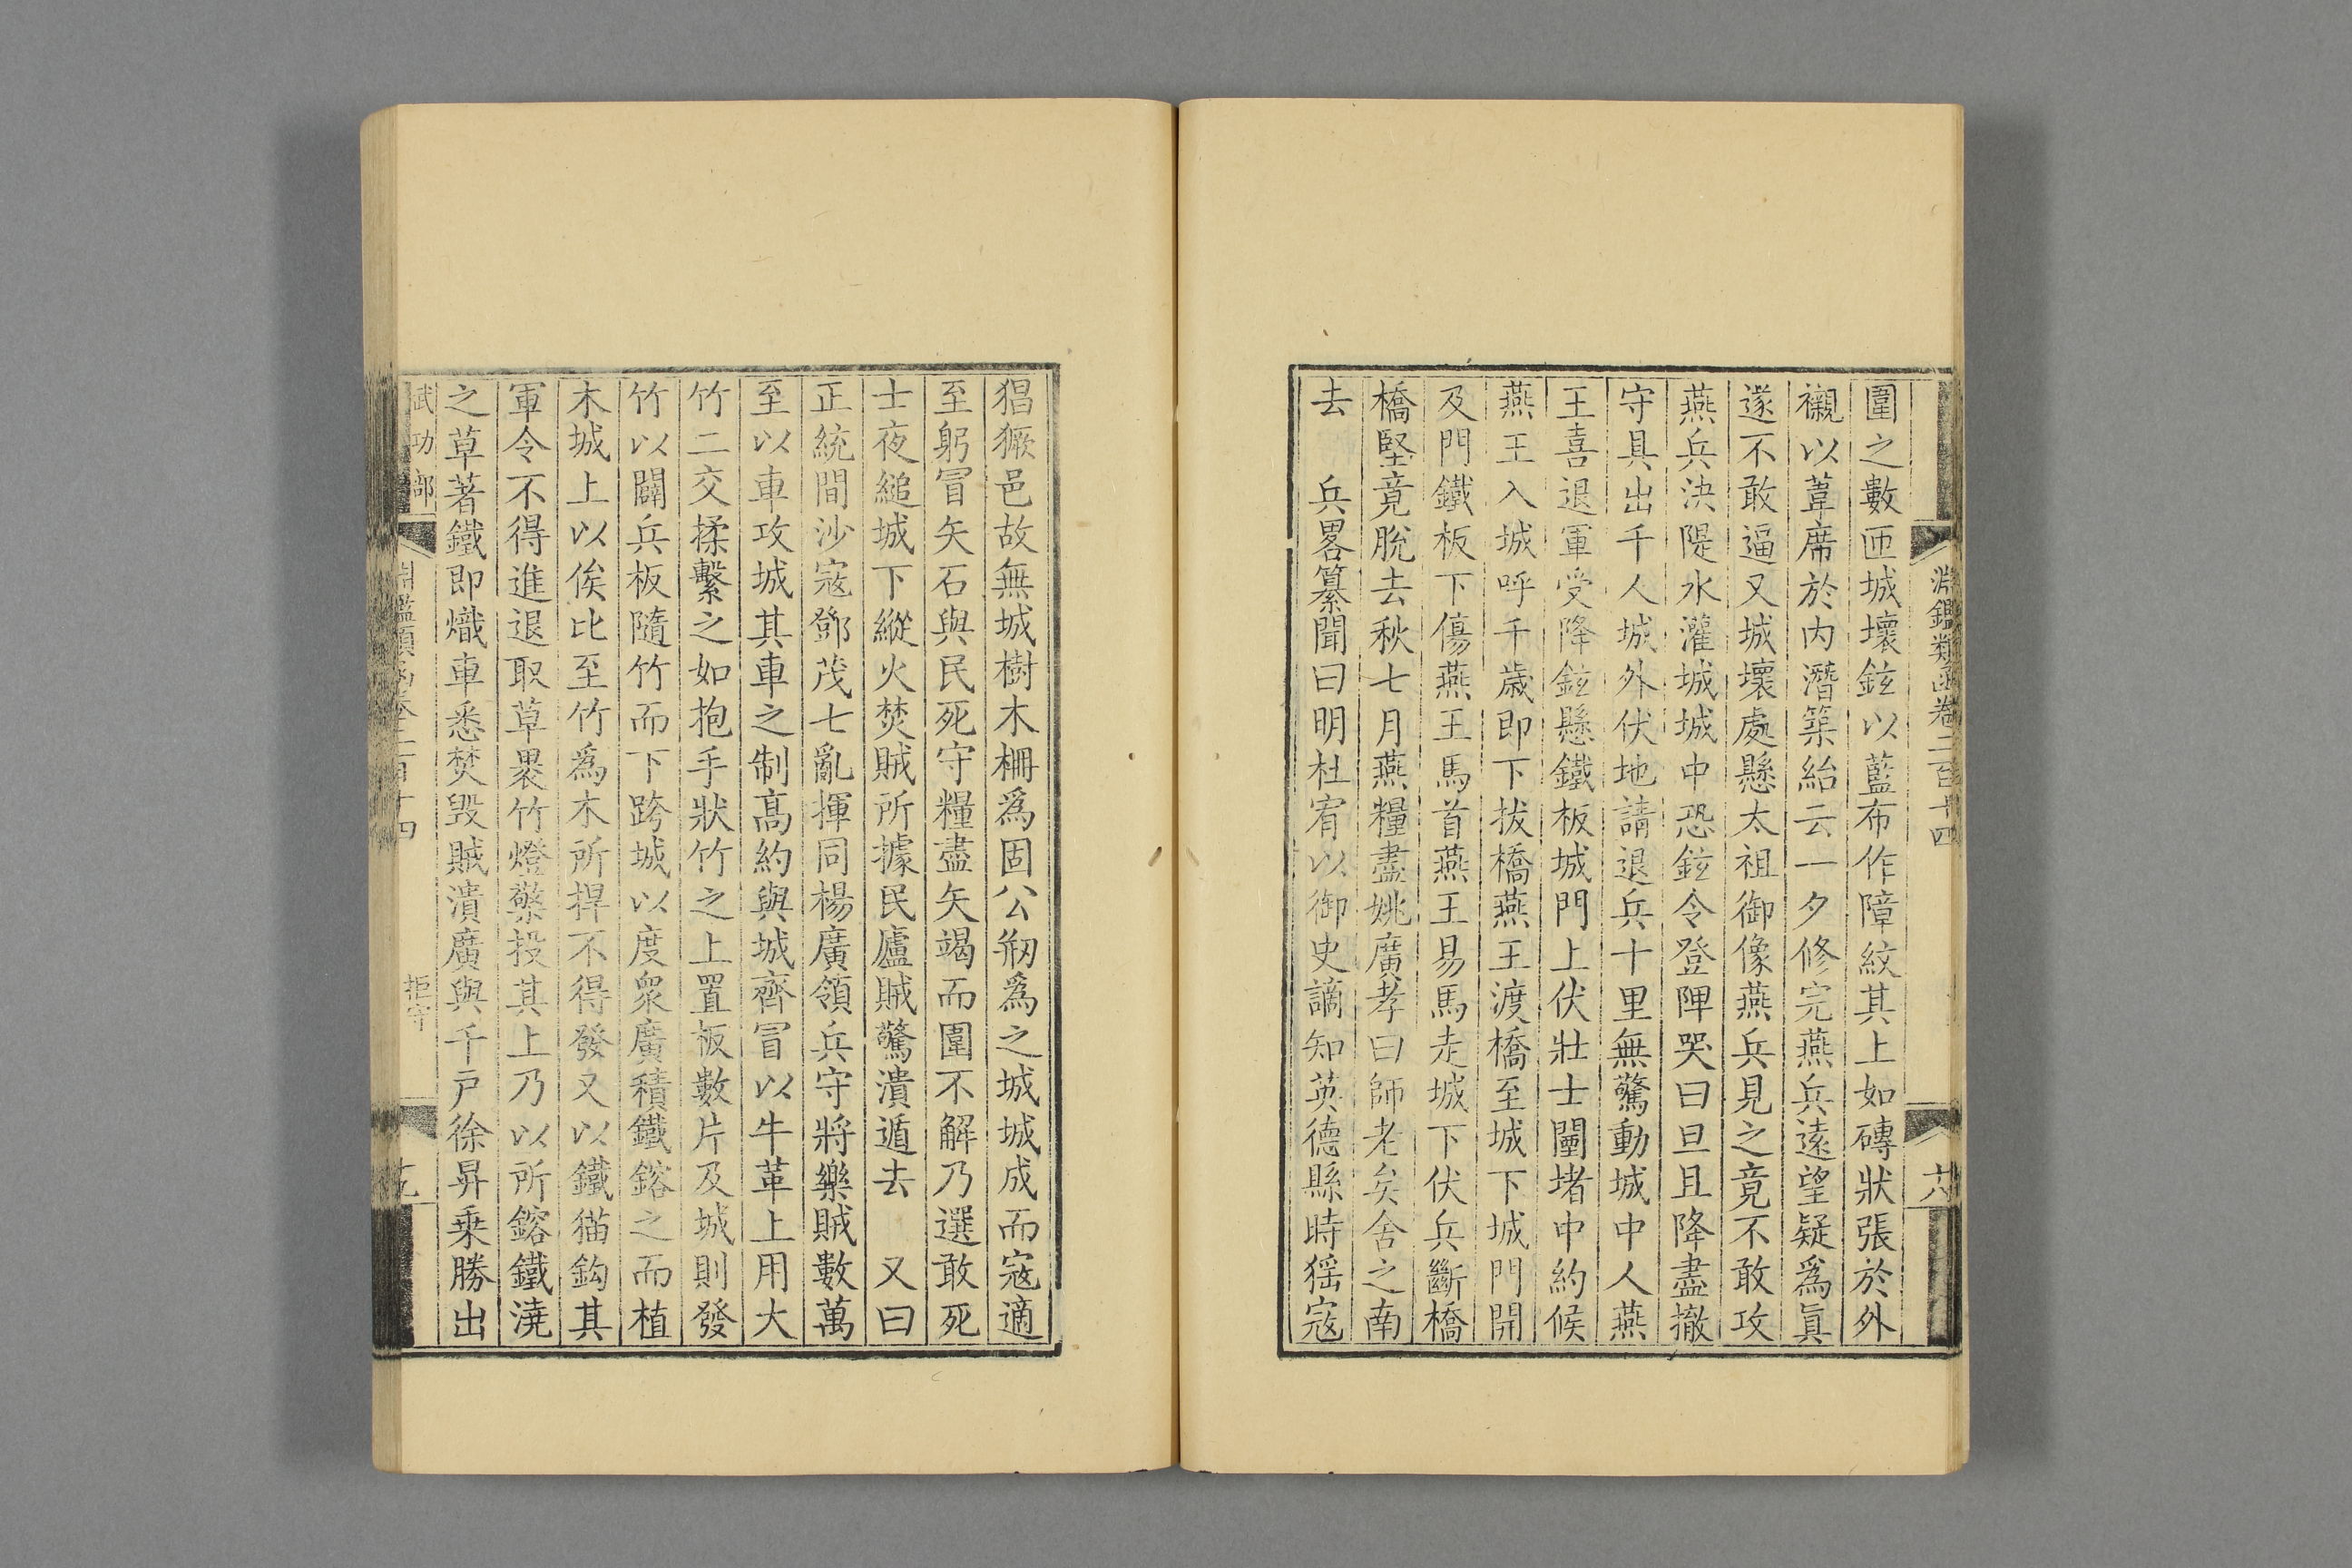 淵鑑類函卷二百十四
十八
圍之數匝城壞鉉以藍布作障紋其上如磚狀張於外
襯以葦席於内潛築紿云一夕修完燕兵遠望疑爲眞
遂不敢逼又城壞處懸太祖御像燕兵見之竟不敢攻
燕兵決隄水灌城城中恐鉉令登陴哭曰旦且降盡撤
守具出千人城外伏地請退兵十里無驚動城中人燕
王喜退軍受降鉉懸鐵板城門上伏壯士闉堵中約候
燕王入城呼千歲即下拔橋燕王渡橋至城下城門開
及門鐵板下傷燕王馬首燕王易馬走城下伏兵斷橋
橋堅竟脫去秋七月燕糧盡姚廣孝曰師老矣舍之南
去　兵畧纂聞曰明杜宥以御史謫知英德縣時猺寇
猖獗邑故無城樹木柵爲固公剏爲之城城成而寇適
至躬冒矢石與民死守糧盡矢竭而圍不解乃選敢死
士夜縋城下縱火焚賊所據民廬賊驚潰遁去　又曰
正統間沙寇鄧茂七亂揮同楊廣領兵守將樂賊數萬
至以車攻城其車之制高約與城齊冒以牛革上用大
竹二交揉繫之如抱手狀竹之上置板數片及城則發
竹以闢兵板隨竹而下跨城以度衆廣積鐵鎔之而植
木城上以俟比至竹爲木所捍不得發又以鐵猫鈎其
軍令不得進退取草褁竹燈檠投其上乃以所鎔鐵澆
之草著鐵即熾車悉焚毀賊潰廣與千戸徐昇乘勝出
武功部
淵鑑類函卷二百十四
拒守
十九